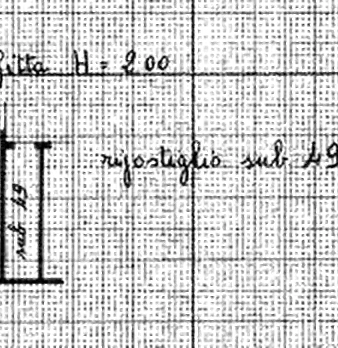 fitta H = 200
rijostiglio sub 49
sub 49